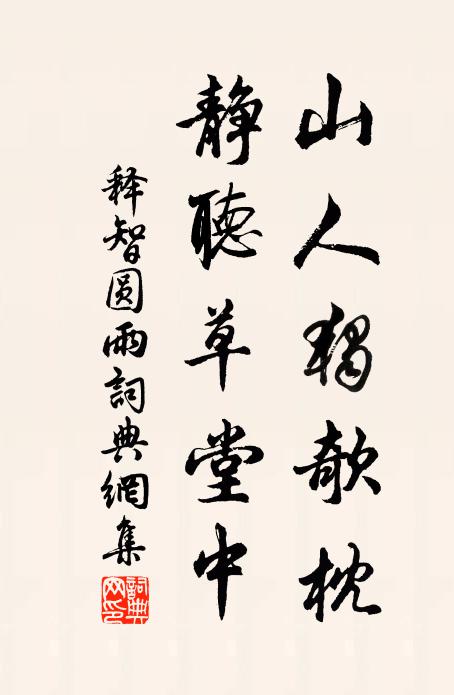 山人獨欹枕
靜聽草堂中
释智圆雨詞典網集
詞典网印